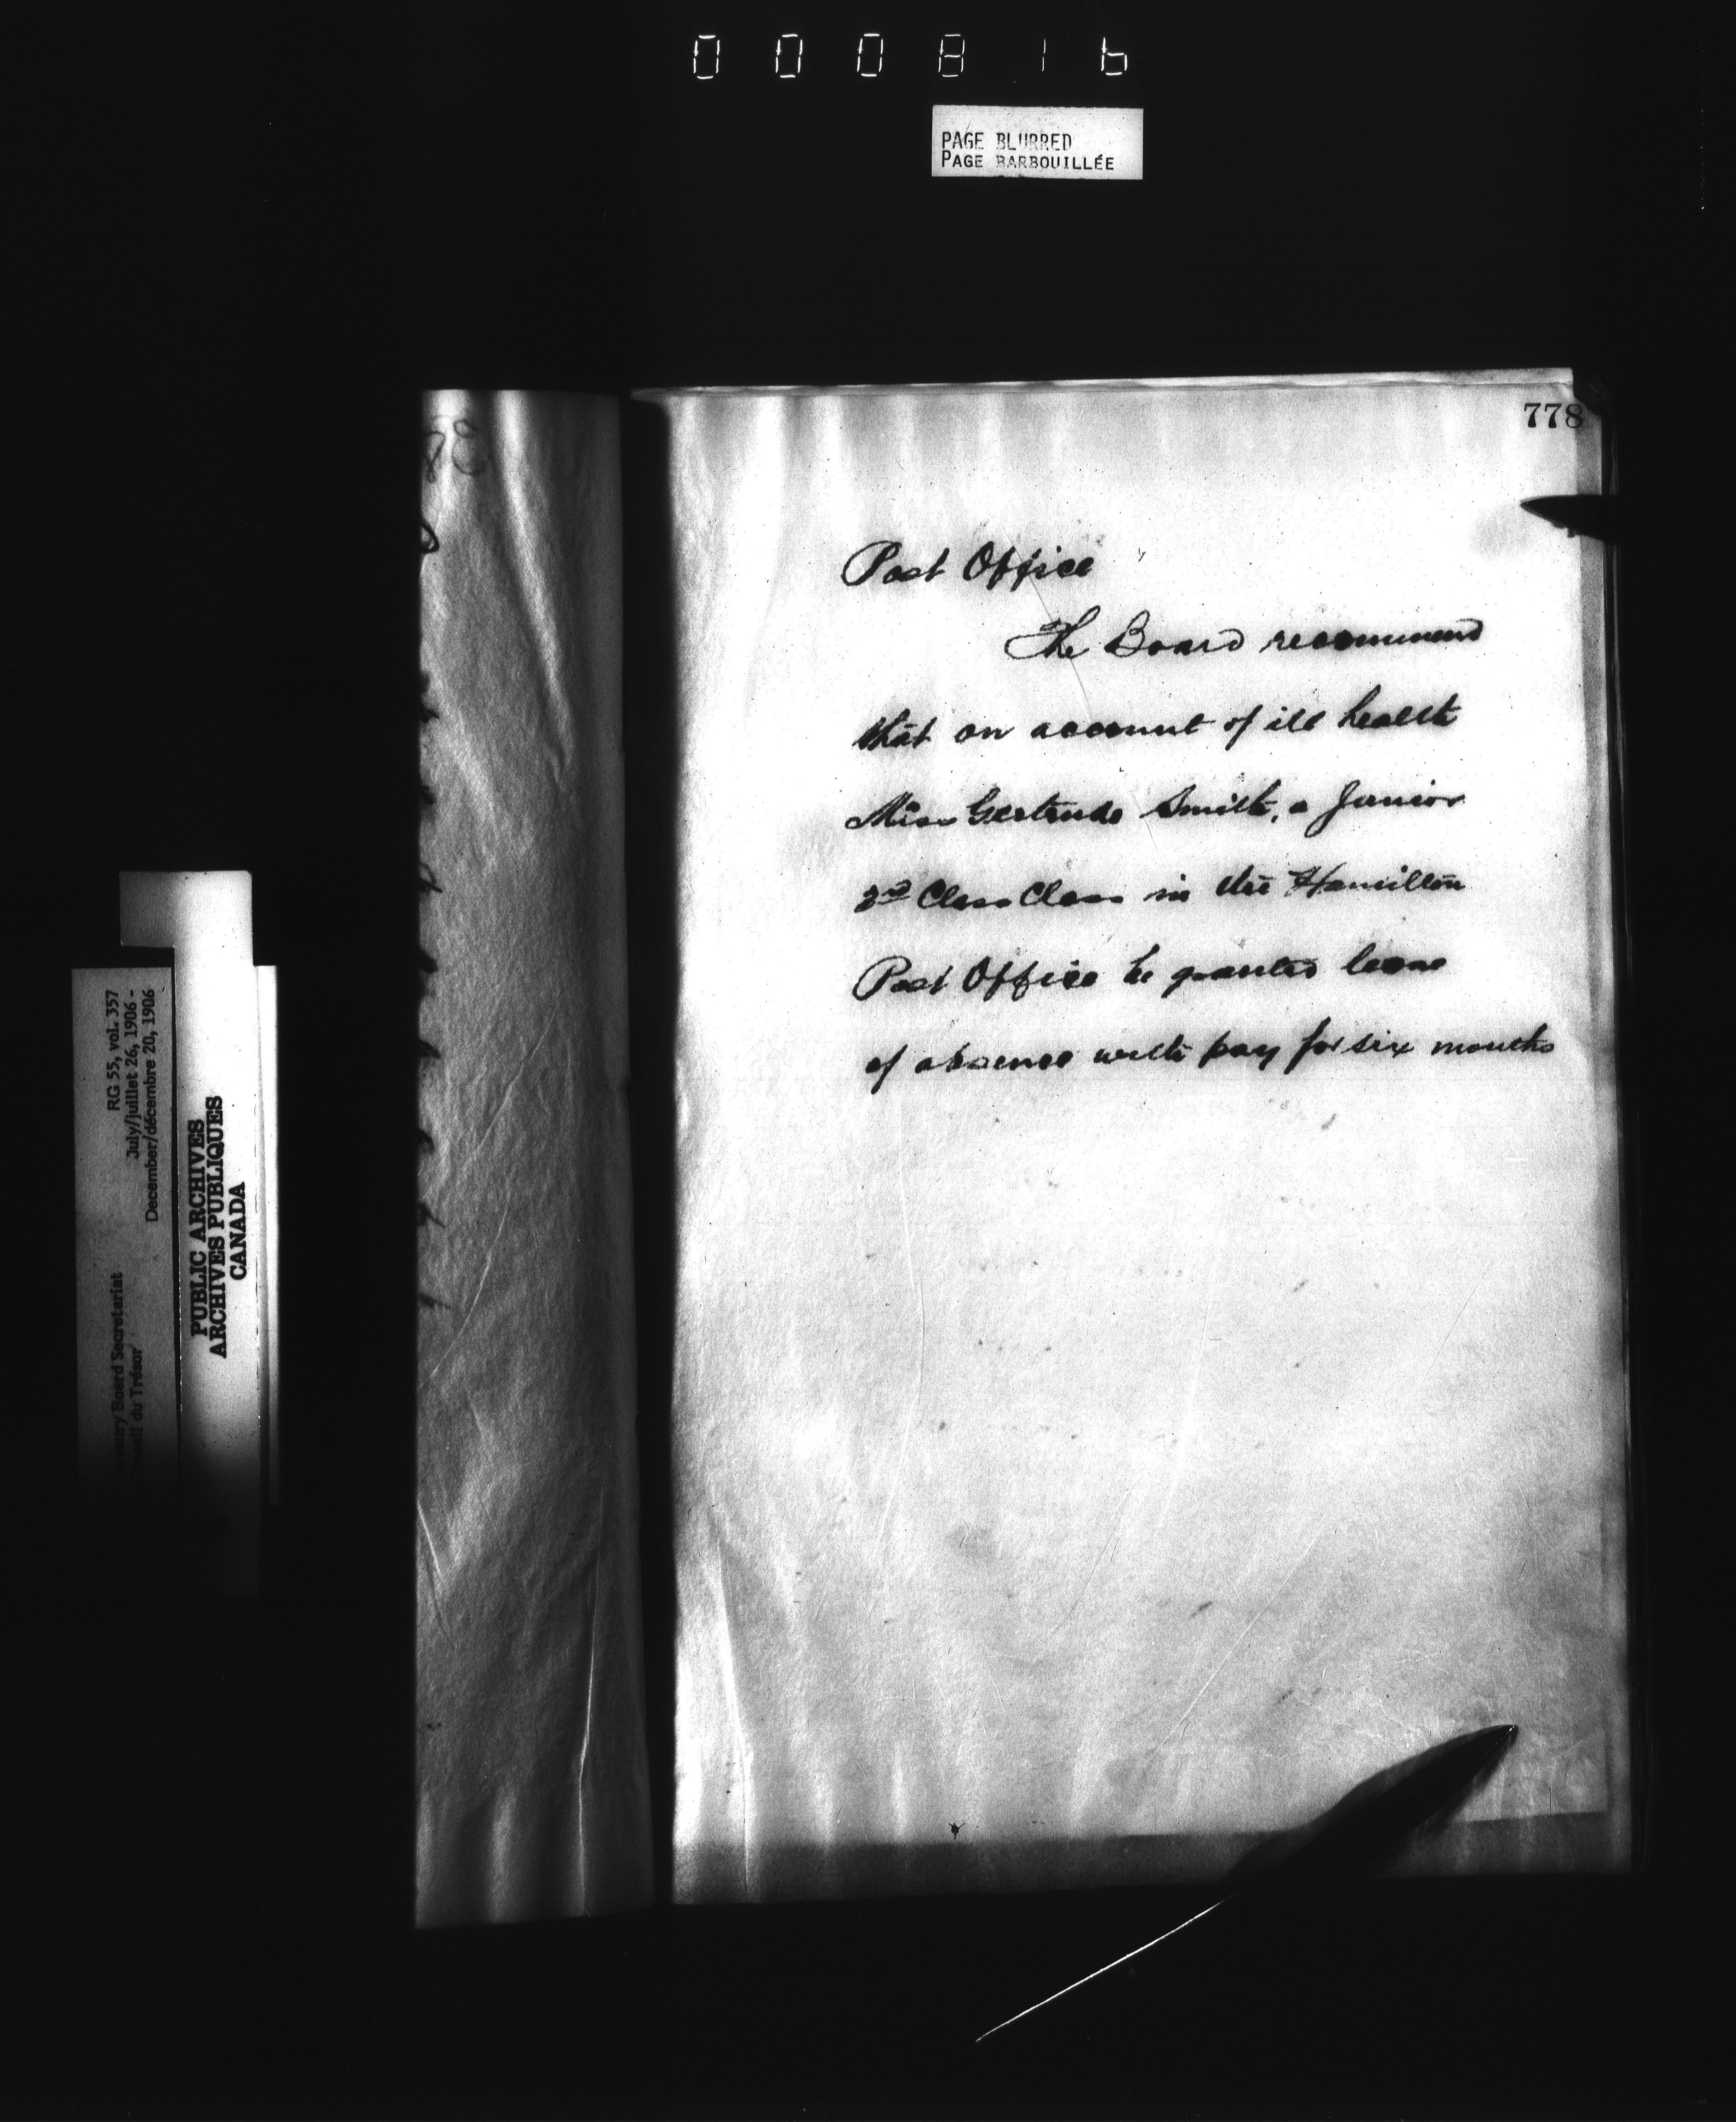 000816
PAGE BLURRED
PAGE BARBOUILLÉE
778
Post Office
The Board recommend
that on account of ill health
Miss Gertrude Smith, a Junior
2nd Class Class in the Hamilton
Post Office be granted leave
of absence with pay for six months
RG 55, vol. 357
July/juillet 26, 1906 -
December/décembre 20, 1906
Board Secretariat
du Trésor
PUBLIC ARCHIVES
ARCHIVES PUBLIQUES
CANADA